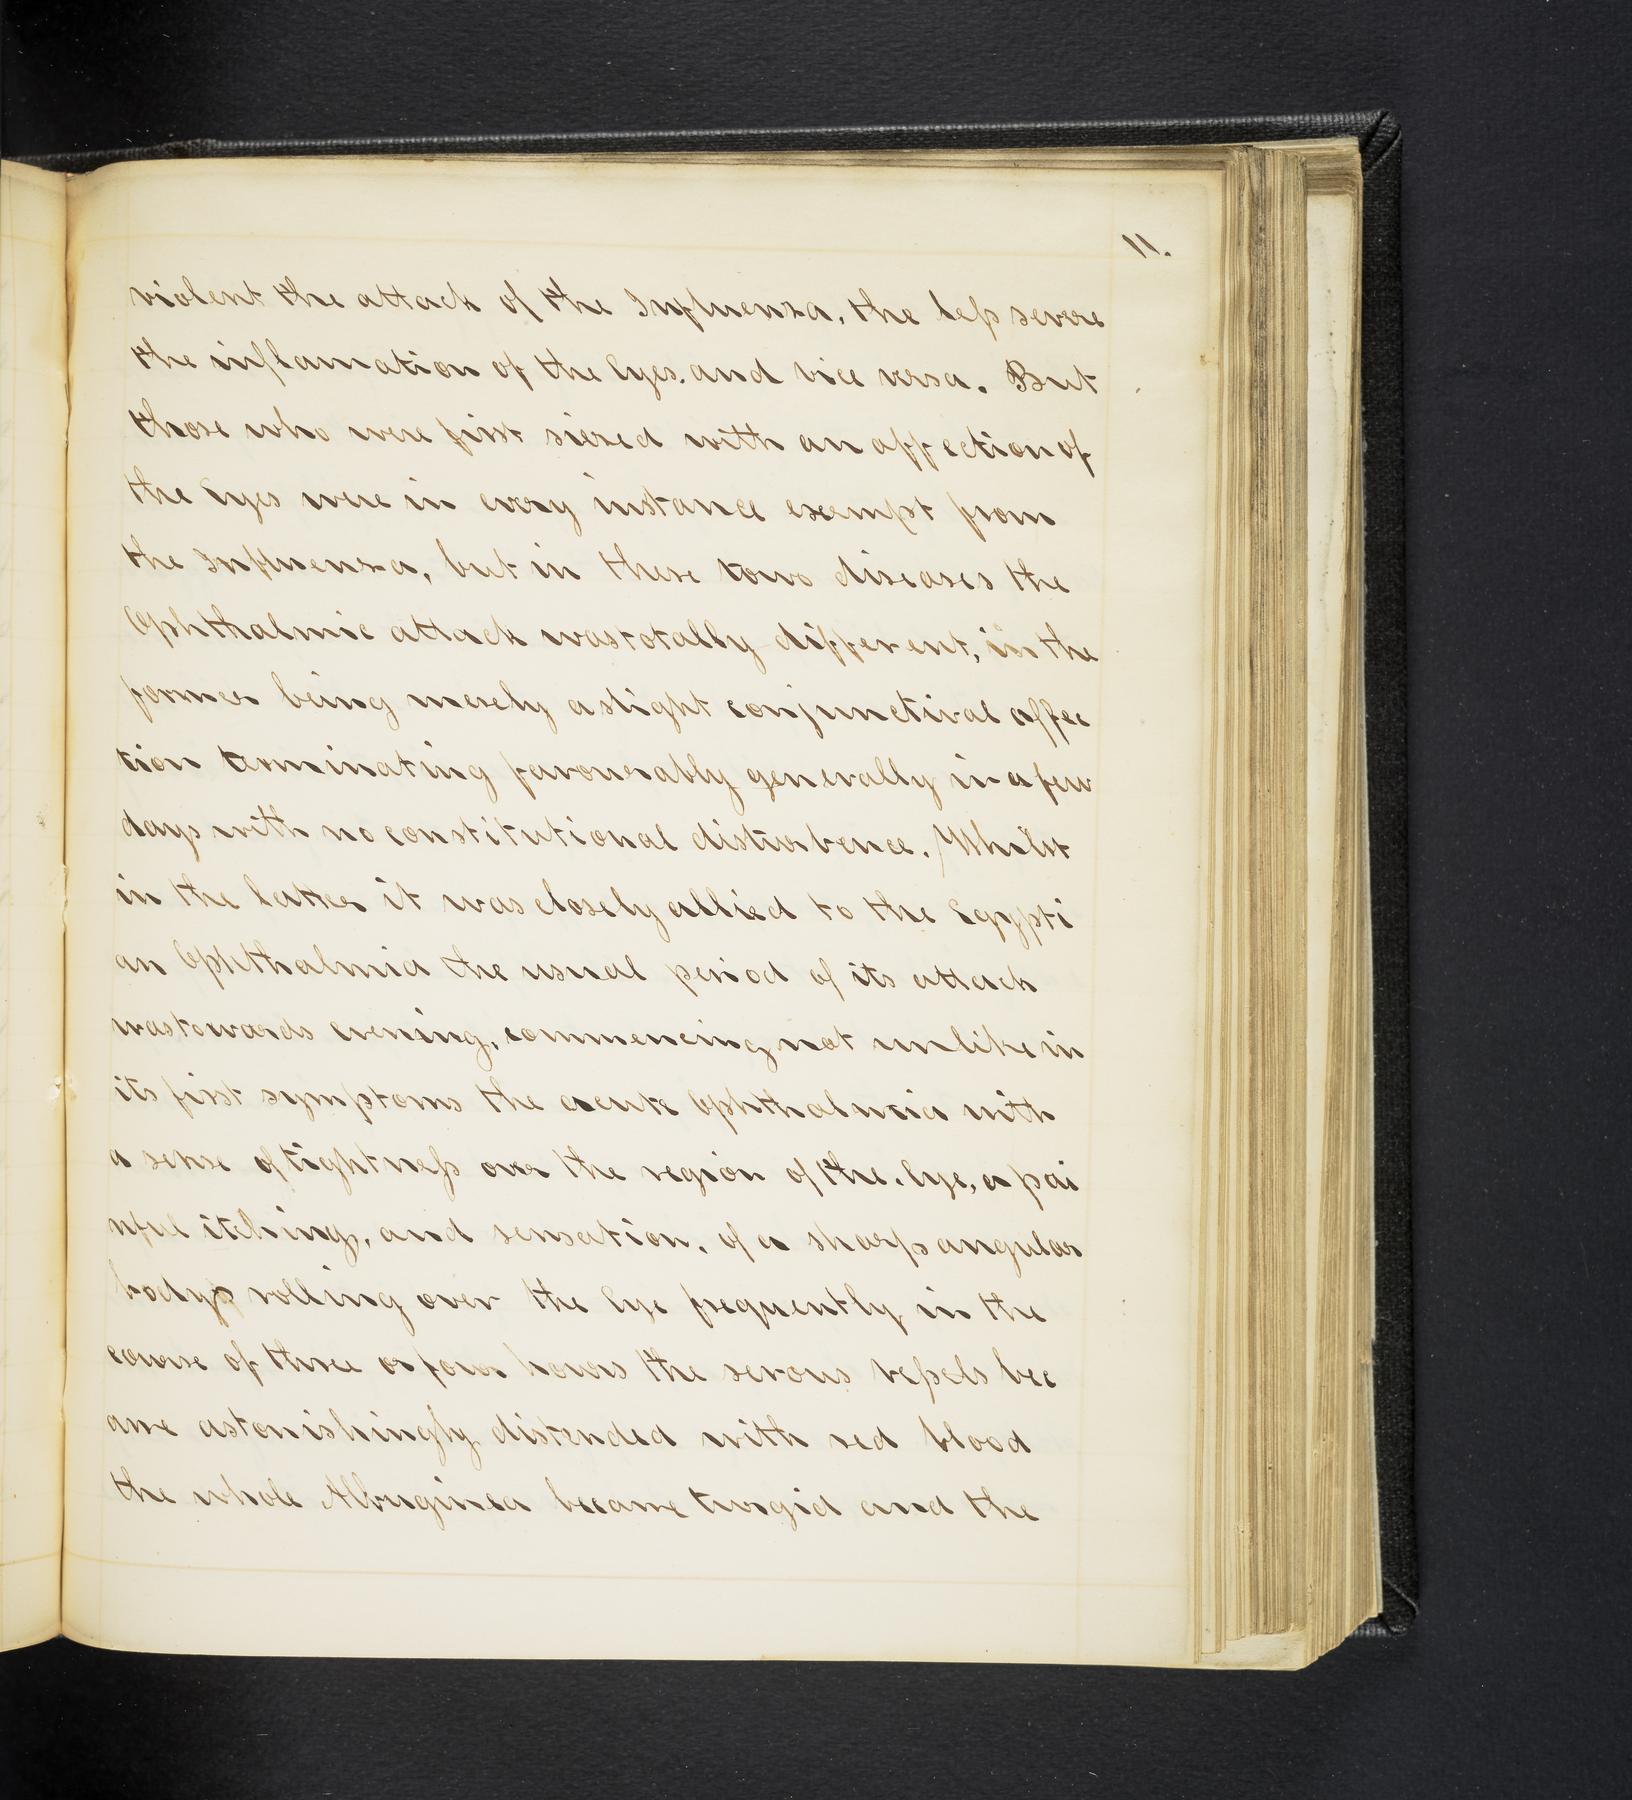 11.
violent the attack of the Influenza, the less severe
the inflamation of the Eyes. and vice versa. But
those who were first siezed with an affection of
the Eyes were in every instance exempt from
the Influenza, but in these towo diseases the
Ophthalmic attack was totally different, in the
former being merely a slight conjunctival affec
tion terminating favourably generally in a few
days with no constitutional disturbence. Whilst
in the latter it was closely allied to the Egypti
an Ophthalmia the usual period of its attack
was towards evening, commencing not unlike in
its first symptoms the acute Ophthalmia with
a sense of tightness over the region of the. Eye, a pai
nful itching, and sensation, of a sharp angular
body rolling over the Eye frequently in the
course of three or four hours the serous vessels bec
ame astonishingly distended with red blood
the whole Albuginea became turgid and the